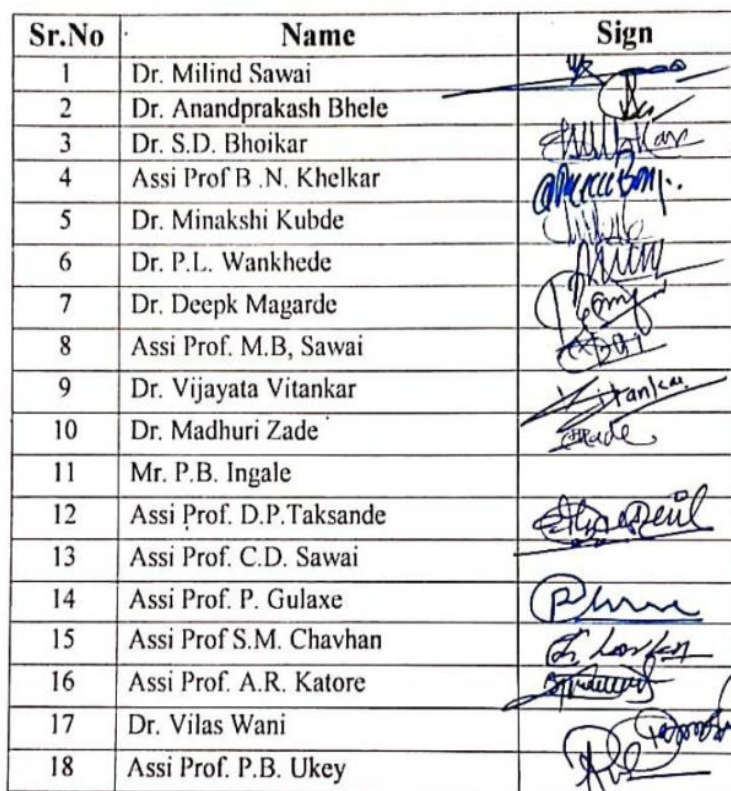 Sr.No Name Sign
1 Dr. Milind Sawai
2 Dr. Anandprakash Bhele
3 Dr. S.D. Bhoikar
4 Assi Prof B .N. Khelkar
5 Dr. Minakshi Kubde
6 Dr. P.L. Wankhede
7 Dr. Deepk Magarde
8 Assi Prof. M.B, Sawai
9 Dr. Vijayata Vitankar
10 Dr. Madhuri Zade
11 Mr. P.B. Ingale
12 Assi Prof. D.P.Taksande
13 Assi Prof. C.D. Sawai
14 Assi Prof. P. Gulaxe
15 Assi Prof S.M. Chavhan
16 Assi Prof. A.R. Katore
17 Dr. Vilas Wani
18 Assi Prof. P.B. Ukey